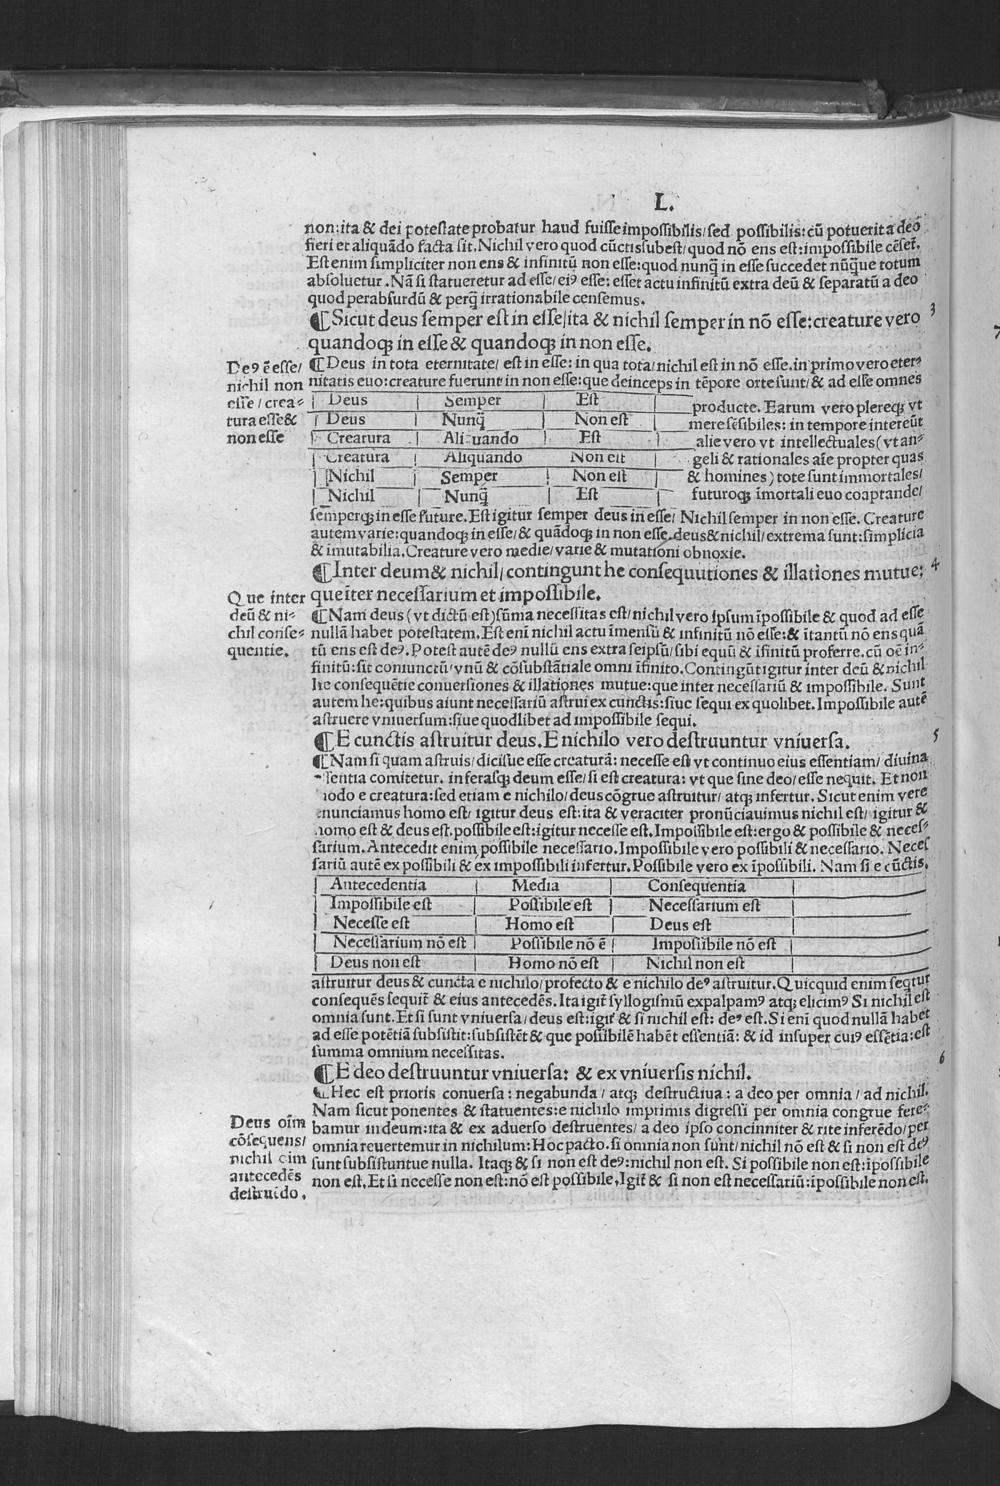 L.
non:ita & dei potestate probatur haud fuisse impossibilis/sed possibilis:cū potuerit a deo
fieri et aliquādo facta sit.Nichil vero quod cūctis subest/quod nō ens est:impossibile cēset̄.
Est enim simpliciter non ens & infinitū non esse:quod nunq̄ in esse succedet nūq̄ue totum
absoluetur.Nā si statueretur ad esse/eiꝰ esse: esset actu infinitū extra deū & separatū a deo
quod perabsurdū & perq̄ irrationabile censemus.
¶Sicut deus semper est in esse/ita & nichil semper in nō esse:creature vero 3
quandoqꝫ in esse & quandoqꝫ in non esse.
Deꝰ ē esse/
nichil non
esse/crea-
tura esse&
non esse
¶Deus in tota eternitate/est in esse: in qua tota/nichil est in nō esse.in primo vero eter-
nitatis euo:creature fuerunt in non esse:que deinceps in tēpore orte sunt/& ad esse omnes
| Deus | Semper | Est |
| Deus | Nunq̄ | Non est |
| Creatura | Aliquando | Est |
| Creatura | Aliquando | Non est |
| Nichil | Semper | Non est |
| Nichil | Nunq̄ | Est |
producte. Earum vero plereqꝫ vt
mere sēsibiles: in tempore intereūt
alie vero vt intellectuales(vt an-
geli & rationales aīe propter quas
& homines)tote sunt immortales/
futuroqꝫ īmortali euo coaptande/
semperqꝫ in esse future.Est igitur semper deus in esse/ Nichil semper in non esse. Creature
autem varie:quandoqꝫ in esse/& quādoqꝫ in non esse.deus&nichil/extrema sunt:simplicia
& imutabilia.Creature vero medie/varie & mutationi obnoxie.
¶Inter deum& nichil/contingunt he consequutiones & illationes mutue: 4
que iter necessarium et impossibile.
Que inter
deū & ni-
chil conse-
quentie.
¶Nam deus(vt dictū est)sūma necessitas est/nichil vero ipsum īpossibile & quod ad esse
nullā habet potestatem.Est enī nichil actu īmensū & infinitū nō esse:& ītantū nō ens quā
tū ens est deꝰ.Potest autē deꝰ nullū ens extra seipsū/sibi equū & īfinitū proferre.cū oē in-
finitū:sit coniunctū/vnū & cōsubstātiale omni īfinito.Contingūt igitur inter deū & nichil
he consequētie conuersiones & illationes mutue:que inter necessariū & impossibile. Sunt
autem he:quibus aiunt necessariū astrui ex cunctis:siue sequi ex quolibet.Impossibile autē
astruere vniuersum:siue quodlibet ad impossibile sequi.
¶E cunctis astruitur deus.E nichilo vero destruuntur vniuersa. 5
¶Nam si quam astruis/dicisue esse creaturā: necesse est vt continuo eius essentiam/diuina
sentia comitetur. inferasqꝫ deum esse/si est creatura: vt que sine deo/esse nequit. Et non
iodo e creatura:sed etiam e nichilo/deus cōgrue astruitur/atqꝫ infertur. Sicut enim vere
enunciamus homo est/igitur deus est:ita & veraciter pronūciauimus nichil est/igitur &
homo est & deus est.possibile est:igitur necesse est.Impossibile est:ergo & possibile & neces-
sarium.Antecedit enim possibile necessario.Impossibile vero possibili & necessario. Neces
sariū autē ex possibili & ex impossibili infertur.Possibile vero ex īpossibili. Nam si e cūctis.
| Antecedentia | Media | Consequentia |
| Impossibile est | Possibile est | Necessarium est |
| Necesse est | Homo est | Deus est |
| Necessarium nō est | Possibile nō ē | Impossibile nō est |
| Deus non est | Homo nō est | Nichil non est |
astruitur deus & cuncta e nichilo/profecto & e nichilo deꝰ astruitur.Quicquid enim seq̄tur
consequēs sequit̄ & eius antecedēs.Ita igit̄ syllogismū expalpamꝰ atqꝫ elicimꝰ Si nichil est
omnia sunt.Et si sunt vniuersa/deus est:igit̄ & si nichil est: deꝰ est.Si enī quod nullā habet
ad esse potētiā subsistit:subsistēt & que possibilē habēt essentiā: & id insuper cuiꝰ essētia:est
summa omnium necessitas.
¶E deo destruuntur vniuersa: & ex vniuersis nichil. 6
¶Hec est prioris conuersa: negabunda/atqꝫ destructiua: a deo per omnia/ad nichil.
Deus oīm
cōsequens/
nichil oim
antecedēs
destruīdo.
Nam sicut ponentes & statuentes:e nichilo imprimis digressi per omnia congrue fere-
bamur in deum:ita & ex aduerso destruentes/a deo ipso concinniter & rite inferēdo/per
omnia reuertemur in nichilum:Hoc pacto.si omnia non sunt/nichil nō est & si non est deꝰ
sunt subsistuntue nulla. Itaqꝫ & si non est deꝰ:nichil non est. Si possibile non est:īpossibile
non est.Et si necesse non est:nō est possibile.Igit̄ & si non est necessariū:īpossibile non est.